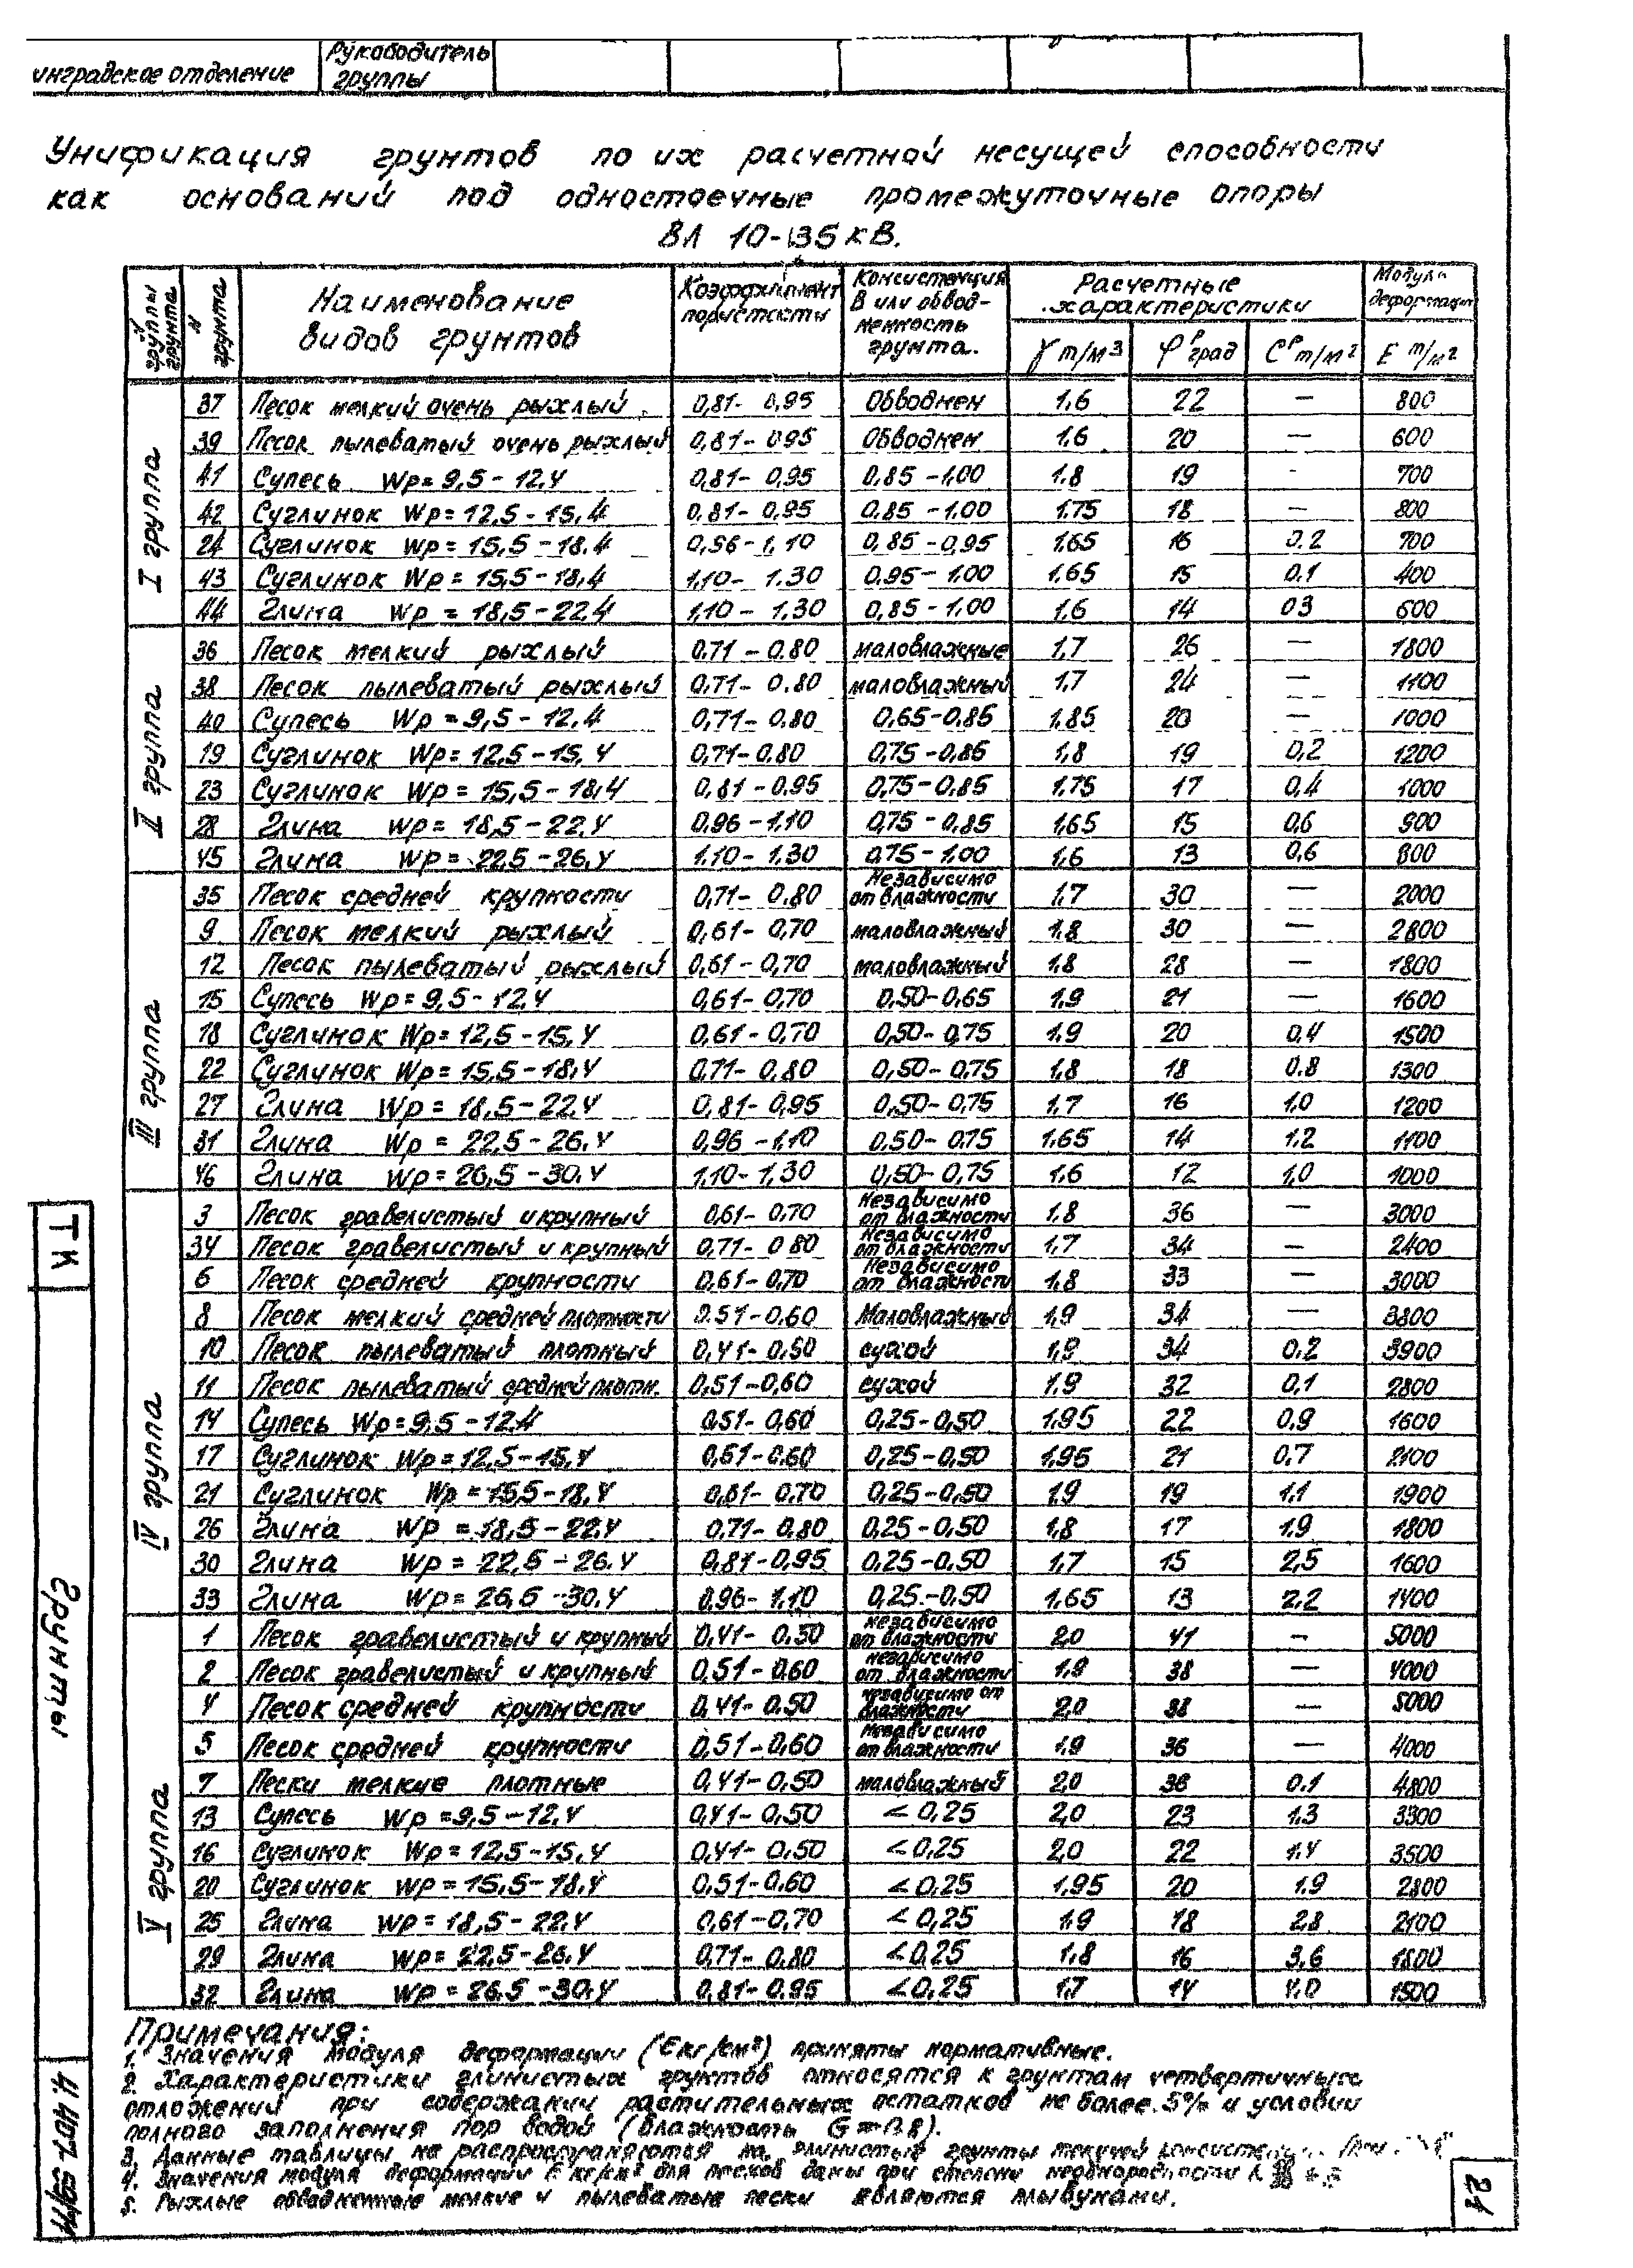 инградское отделение Руководитель
группы
Унификация грунтов по их расчетной несущей способности
как оснований под одностоечные промежуточные опоры
ВЛ 10-35 кВ.
№ группы грунта | N грунта | Наименование видов грунтов | Коэффициент пористости | Консистенция В или обвод-ненность грунта. | Расчетные характеристики | Модули деформации
γ т/м3 | φᵖ град | Cᵖ т/м2 | E т/м2
I группа
37 Песок мелкий очень рыхлый 0,81- 0,95 Обводнен 1,6 22 — 800
39 Песок пылеватый очень рыхлый 0,81- 0,95 Обводнен 1,6 20 — 600
41 Супесь Wp= 9,5 - 12,4 0,81- 0,95 0,85 -1,00 1,8 19 - 700
42 Суглинок Wp=12,5 - 15,4 0,81- 0,95 0.85 -1.00 1,75 18 — 800
24 Суглинок Wp= 15,5 -18.4 0,96-1,10 0,85 -0,95 1,65 16 0.2 700
43 Суглинок Wp = 15,5-18,4 1,10- 1.30 0,95- 1.00 1,65 15 0.1 400
44 Глина Wp = 18,5-22,4 1,10 - 1,30 0,85 -1,00 1,6 14 0 3 600
II группа
36 Песок мелкий рыхлый 0.71 - 0.80 маловлажные 1,7 26 — 1800
38 Песок пылеватый рыхлый 0,71- 0.80 маловлажный 1,7 24 — 1100
40 Супесь Wp = 9,5 - 12,4 0,71- 0.80 0,65-0,85 1,85 20 — 1000
19 Суглинок Wp= 12,5-15,4 0,71-0.80 0,75 -0,85 1,8 19 0,2 1200
23 Суглинок Wp = 15,5-18,4 0,81 -0.95 0,75-0,85 1.75 17 0,4 1000
28 Глина Wp= 18,5-22,4 0.96 -1,10 0,75 - 0,85 1,65 15 0,6 900
45 Глина Wp= 22,5-26,4 1.10- 1,30 0,75-1,00 1,6 13 0,6 800
III группа
35 Песок средней крупности 0,71- 0.80 Независимо от влажности 1,7 30 — 2000
9 Песок мелкий рыхлый 0,61- 0,70 маловлажный 1.8 30 — 2800
12 Песок пылеватый рыхлый 0,61- 0,70 маловлажный 1,8 28 — 1800
15 Супесь Wp=9,5-12,4 0,61- 0,70 0,50-0,65 1,9 21 — 1600
18 Суглинок Wp=12,5-15,4 0,61- 0,70 0,50- 0,75 1,9 20 0,4 1500
22 Суглинок Wp=15,5-18,4 0,71- 0,80 0,50- 0,75 1,8 18 0.8 1300
27 Глина Wp = 18,5-22,4 0,81- 0,95 0,50- 0,75 1,7 16 1,0 1200
31 Глина Wp = 22,5-26,4 0,96 -1,10 0,50- 0,75 1,65 14 1,2 1100
46 Глина Wp= 26,5-30,4 1,10- 1,30 0,50- 0,75 1,6 12 1,0 1000
IV группа
3 Песок гравелистый и крупный 0,61- 0,70 Независимо от влажности 1,8 36 — 3000
34 Песок гравелистый и крупный 0,71- 0 80 Независимо от влажности 1,7 34 — 2400
6 Песок средней крупности 0,61-0,70 Независимо от влажности 1,8 33 — 3000
8 Песок мелкий средней плотности 0.51-0,60 Маловлажный 1,9 34 — 3800
10 Песок пылеватый плотный 0,41- 0,50 сухой 1,9 34 0.2 3900
11 Песок пылеватый средней плотн. 0,51-0,60 сухой 1,9 32 0,1 2800
14 Супесь Wp=9,5-12,4 0,51- 0,60 0,25-0,50 1,95 22 0,9 1600
17 Суглинок Wp=12,5-15,4 0,51-0,60 0,25-0,50 1,95 21 0,7 2100
21 Суглинок Wp = 15,5-18,4 0,61- 0,70 0,25-0,50 1,9 19 1,1 1900
26 Глина Wp = 18,5-22,4 0,71- 0,80 0,25-0,50 1,8 17 1,9 1800
30 Глина Wp = 22,5-26.4 0,81-0,95 0,25-0,50 1,7 15 2,5 1600
33 Глина Wp= 26,5-30,4 0.96- 1,10 0,25-0,50 1,65 13 2,2 1400
V группа
1 Песок гравелистый и крупный 0,41- 0,50 независимо от влажности 2,0 41 — 5000
2 Песок гравелистый и крупный 0,51-0,60 независимо от влажности 1,9 38 — 4000
4 Песок средней крупности 0,41-0,50 независимо от влажности 2,0 38 — 5000
5 Песок средней крупности 0,51-0,60 Независимо от влажности 1,9 36 — 4000
7 Пески мелкие плотные 0,41-0,50 маловлажный 2,0 36 0.1 4800
13 Супесь Wp =9,5-12,4 0,41- 0,50 < 0,25 2,0 23 1,3 3300
16 Суглинок Wp=12,5-15,4 0,41- 0,50 < 0,25 2,0 22 1,4 3500
20 Суглинок Wp=15,5-18,4 0,51-0.60 < 0,25 1,95 20 1,9 2800
25 Глина Wp= 18,5-22,4 0,61-0,70 < 0,25 1,9 18 2,8 2100
29 Глина Wp= 22,5-26,4 0,71- 0,80 < 0,25 1,8 16 3,6 1800
32 Глина Wp= 26.5 -30,4 0,81- 0,95 < 0,25 1,7 14 4,0 1500
Примечания:
1. Значения модуля деформации (E кг/см²) приняты нормативные.
2. Характеристики глинистых грунтов относятся к грунтам четвертичных
отложений при содержании растительных остатков не более 5% и условии
полного заполнения пор водой (влажность G = 0.8).
3. Данные таблицы не распространяются на глинистые грунты текучей
4. Значения модуля деформации E кг/см² для песков даны при степени неоднородности
5. Рыхлые обводненные мелкие и пылеватые пески являются плывунами.
ТК
Грунты
4.407
21